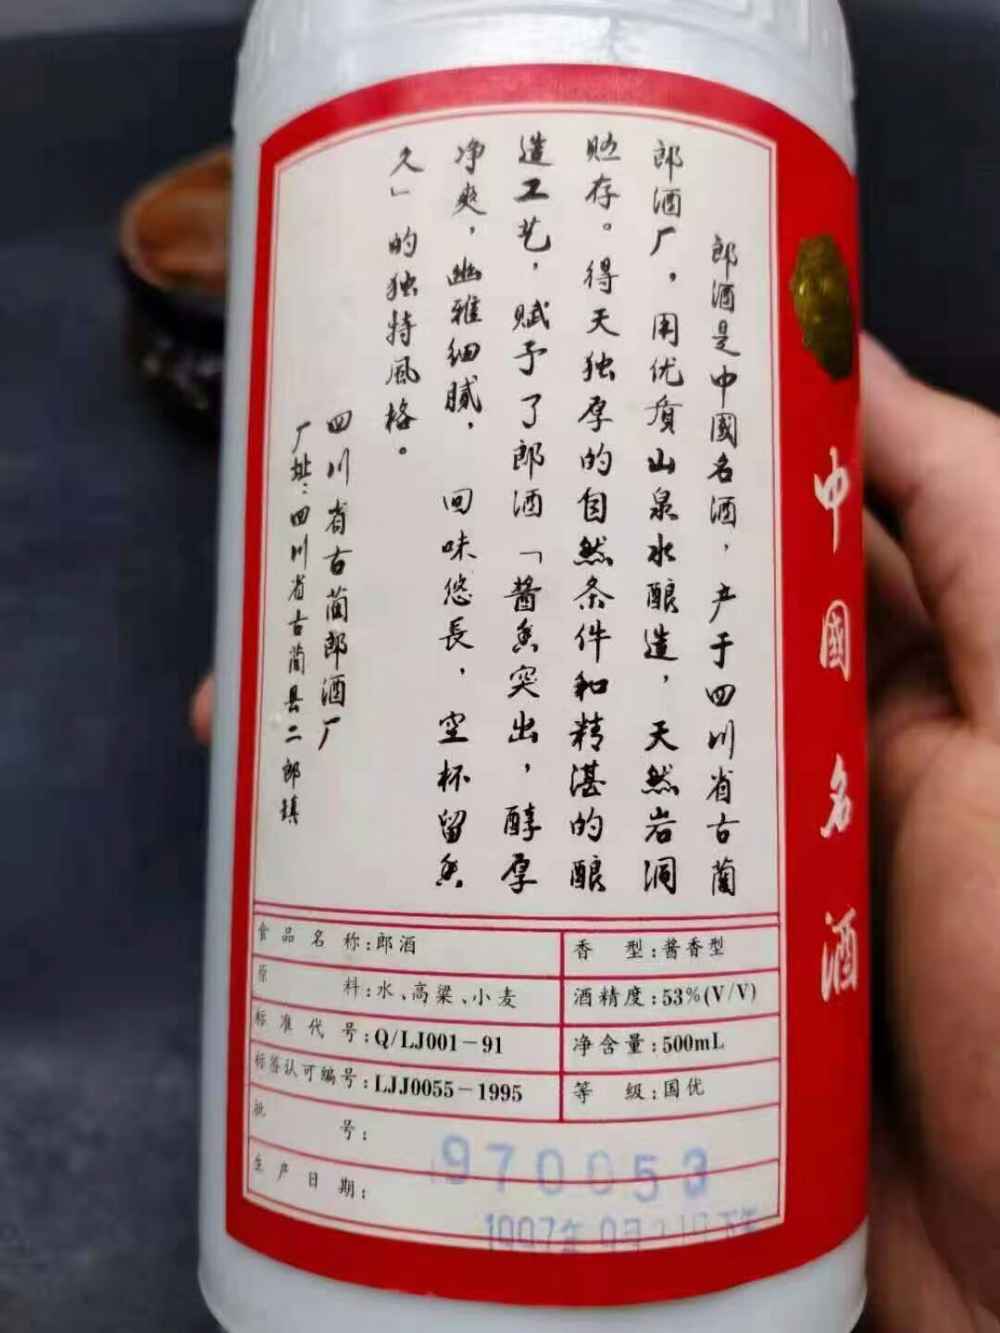 郎酒是中國名酒，产于四川省古蔺
郎酒厂。用优质山泉水酿造，天然岩洞
贮存。得天独厚的自然条件和精湛的酿
造工艺，赋予了郎酒「酱香突出，醇厚
净爽，幽雅细腻，回味悠長，空杯留香
久」的独特風格。
四川省古蔺郎酒厂
厂址：四川省古蔺县二郎镇
中國名酒
食品名称：郎酒
香型：酱香型
原料：水、高粱、小麦
酒精度：53%(V/V)
标准代号：Q/LJ001-91
净含量：500mL
标签认可编号：LJJ0055-1995
等级：国优
批号：
970053
生产日期：
1997年